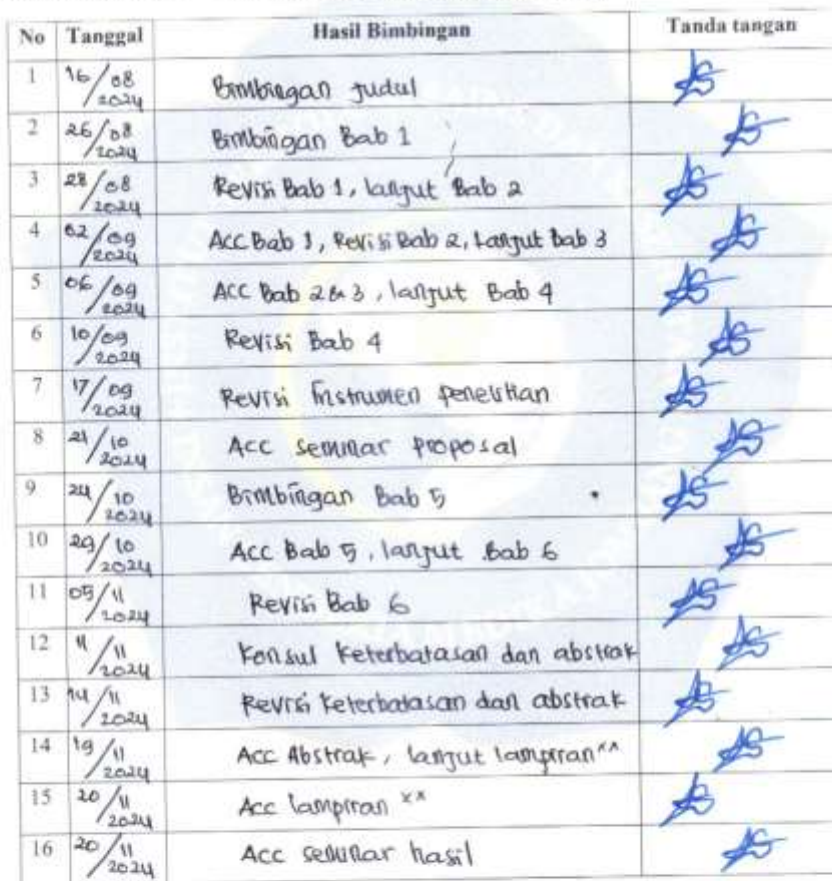 No Tanggal Hasil Bimbingan Tanda tangan
1 16/08 2024 Bimbingan judul
2 26/08 2024 Bimbingan Bab 1
3 28/08 2024 Revisi Bab 1, lanjut Bab 2
4 02/09 2024 ACC Bab 1, Revisi Bab 2, Lanjut bab 3
5 06/09 2024 ACC Bab 2 & 3, lanjut Bab 4
6 10/09 2024 Revisi Bab 4
7 17/09 2024 Revisi Instrumen penelitian
8 21/10 2024 Acc seminar proposal
9 24/10 2024 Bimbingan Bab 5
10 29/10 2024 Acc Bab 5, lanjut Bab 6
11 05/11 2024 Revisi Bab 6
12 11/11 2024 Konsul keterbatasan dan abstrak
13 14/11 2024 Revisi keterbatasan dan abstrak
14 19/11 2024 Acc Abstrak, lanjut lampiran^^
15 20/11 2024 Acc lampiran xx
16 20/11 2024 Acc seminar hasil